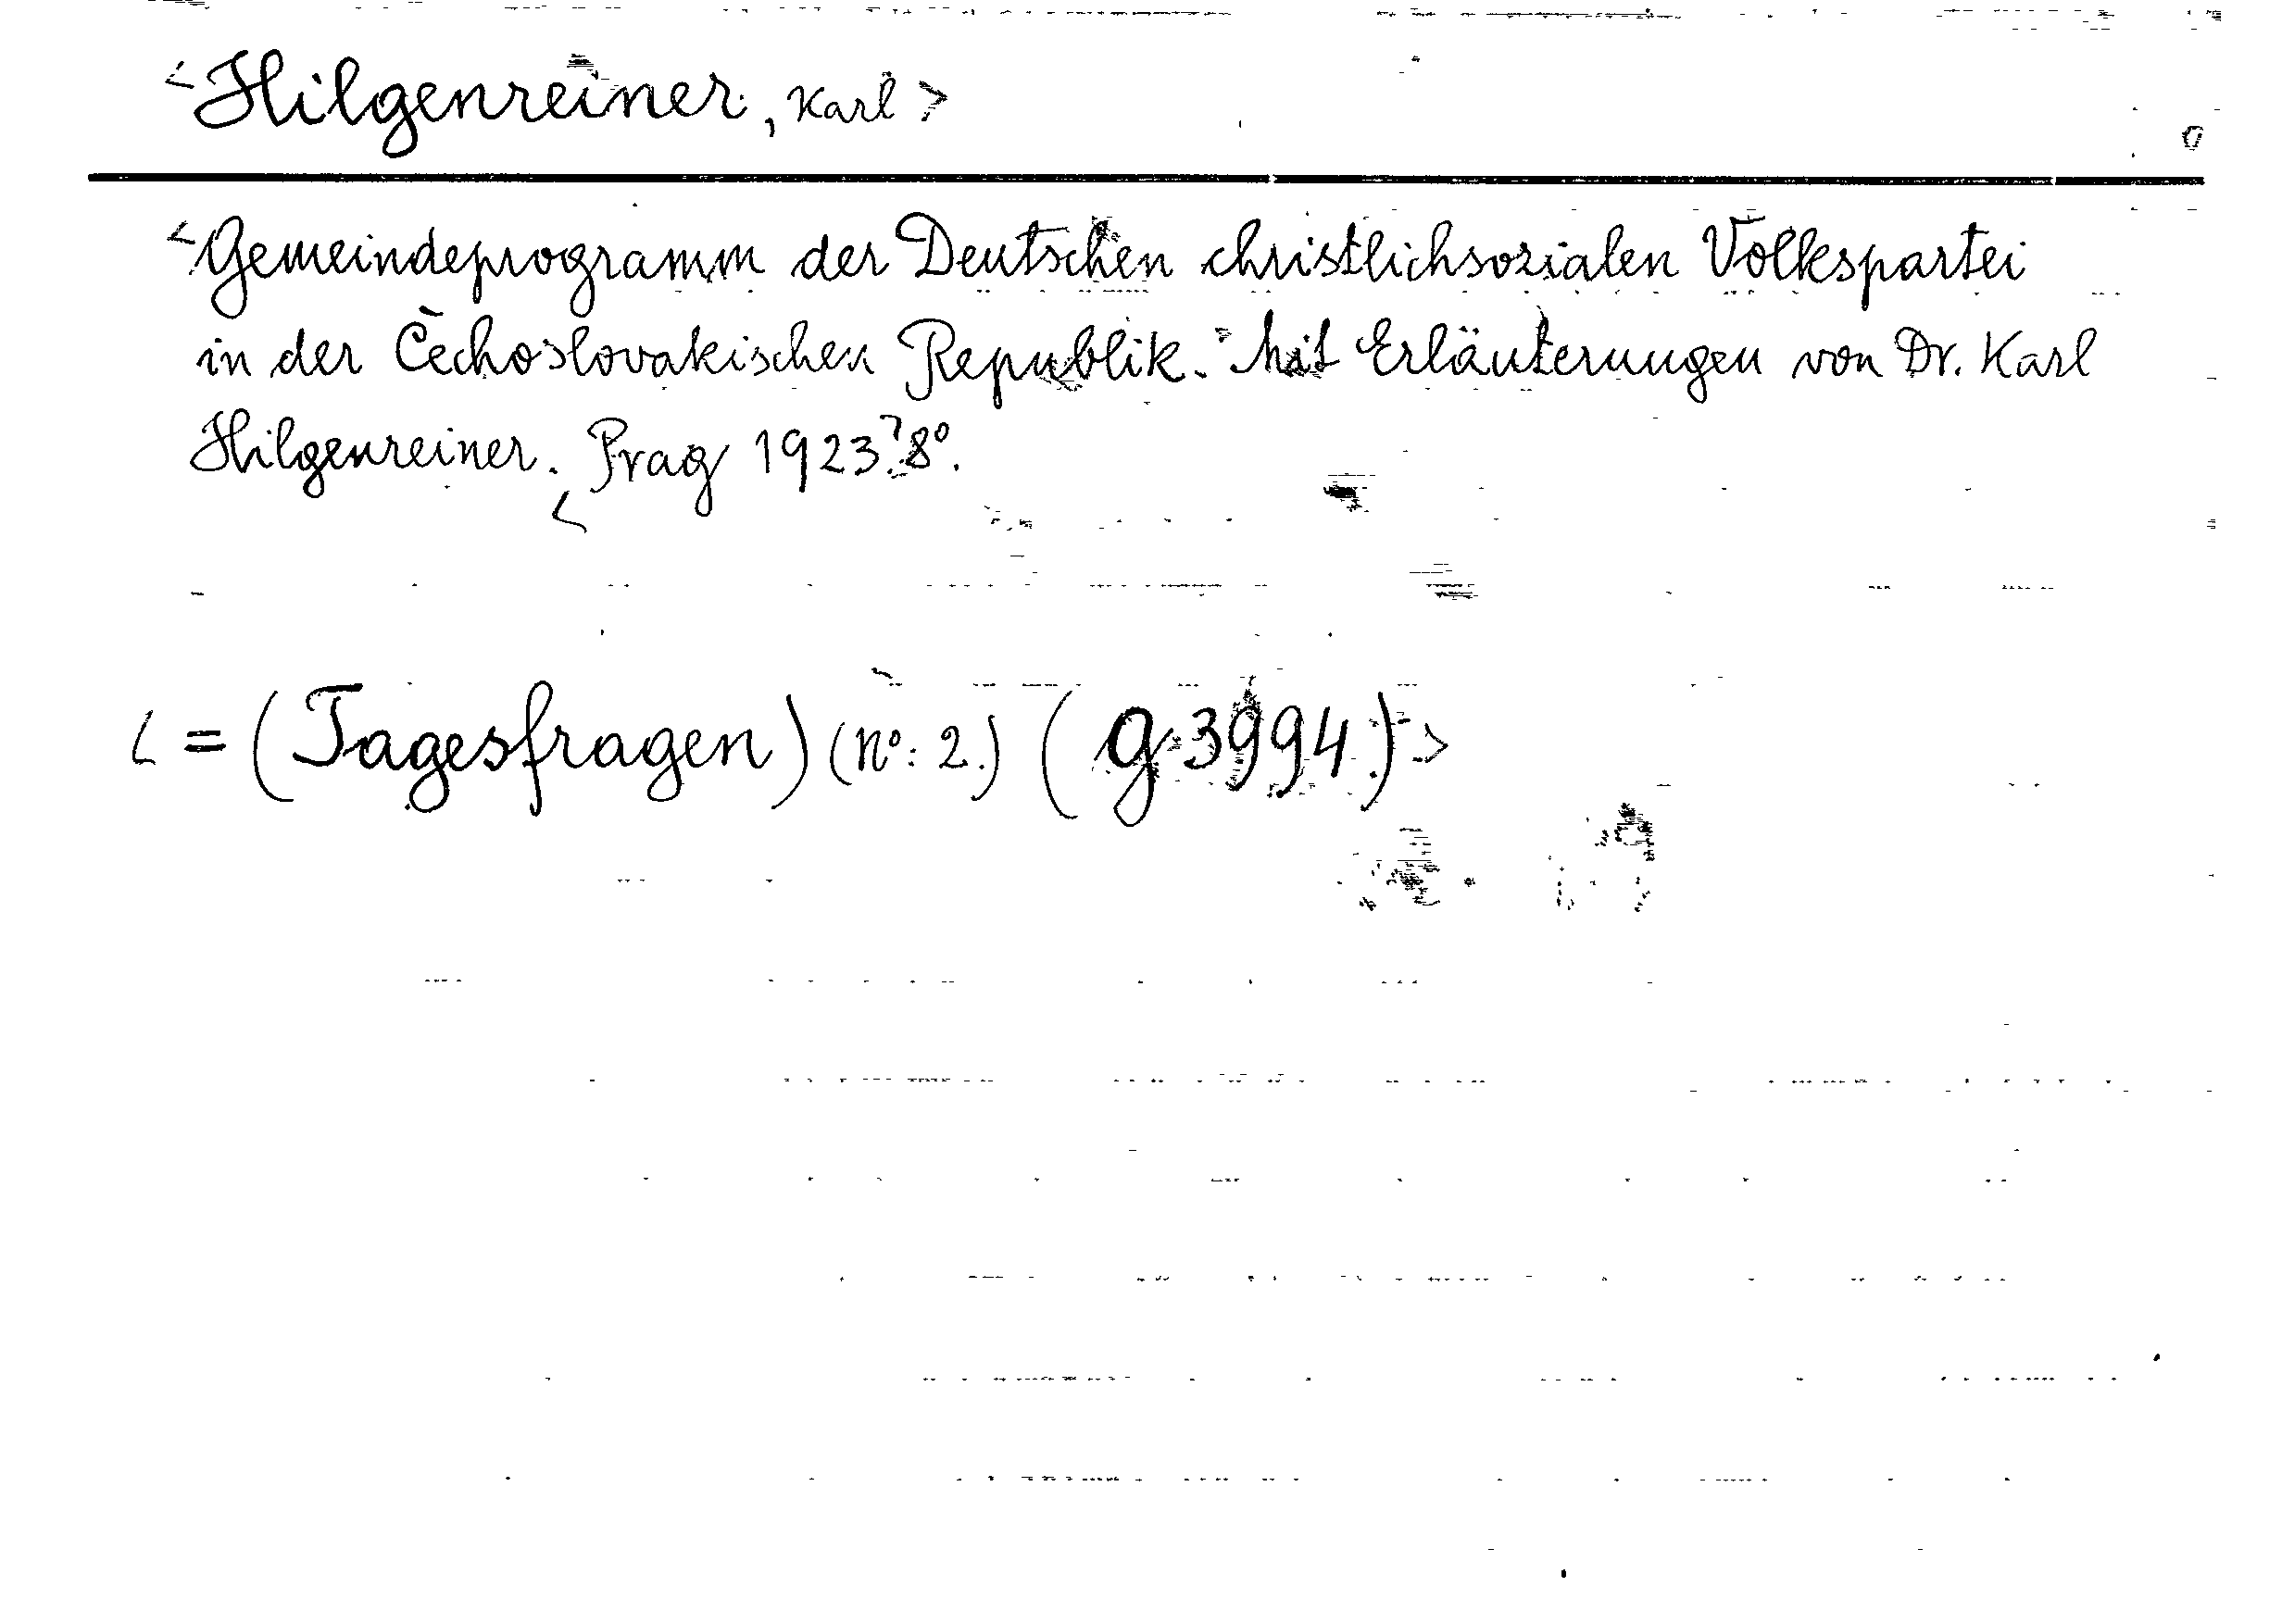 <Hilgenreiner, Karl>
<Gemeindeprogramm der Deutschen christlichsozialen Volkspartei
in der Čechoslovakischen Republik. Mit Erläuterungen von Dr. Karl
Hilgenreiner. Prag 1923? 8°.
<= (Tagesfragen) (nº: 2.) (g. 3994.)>